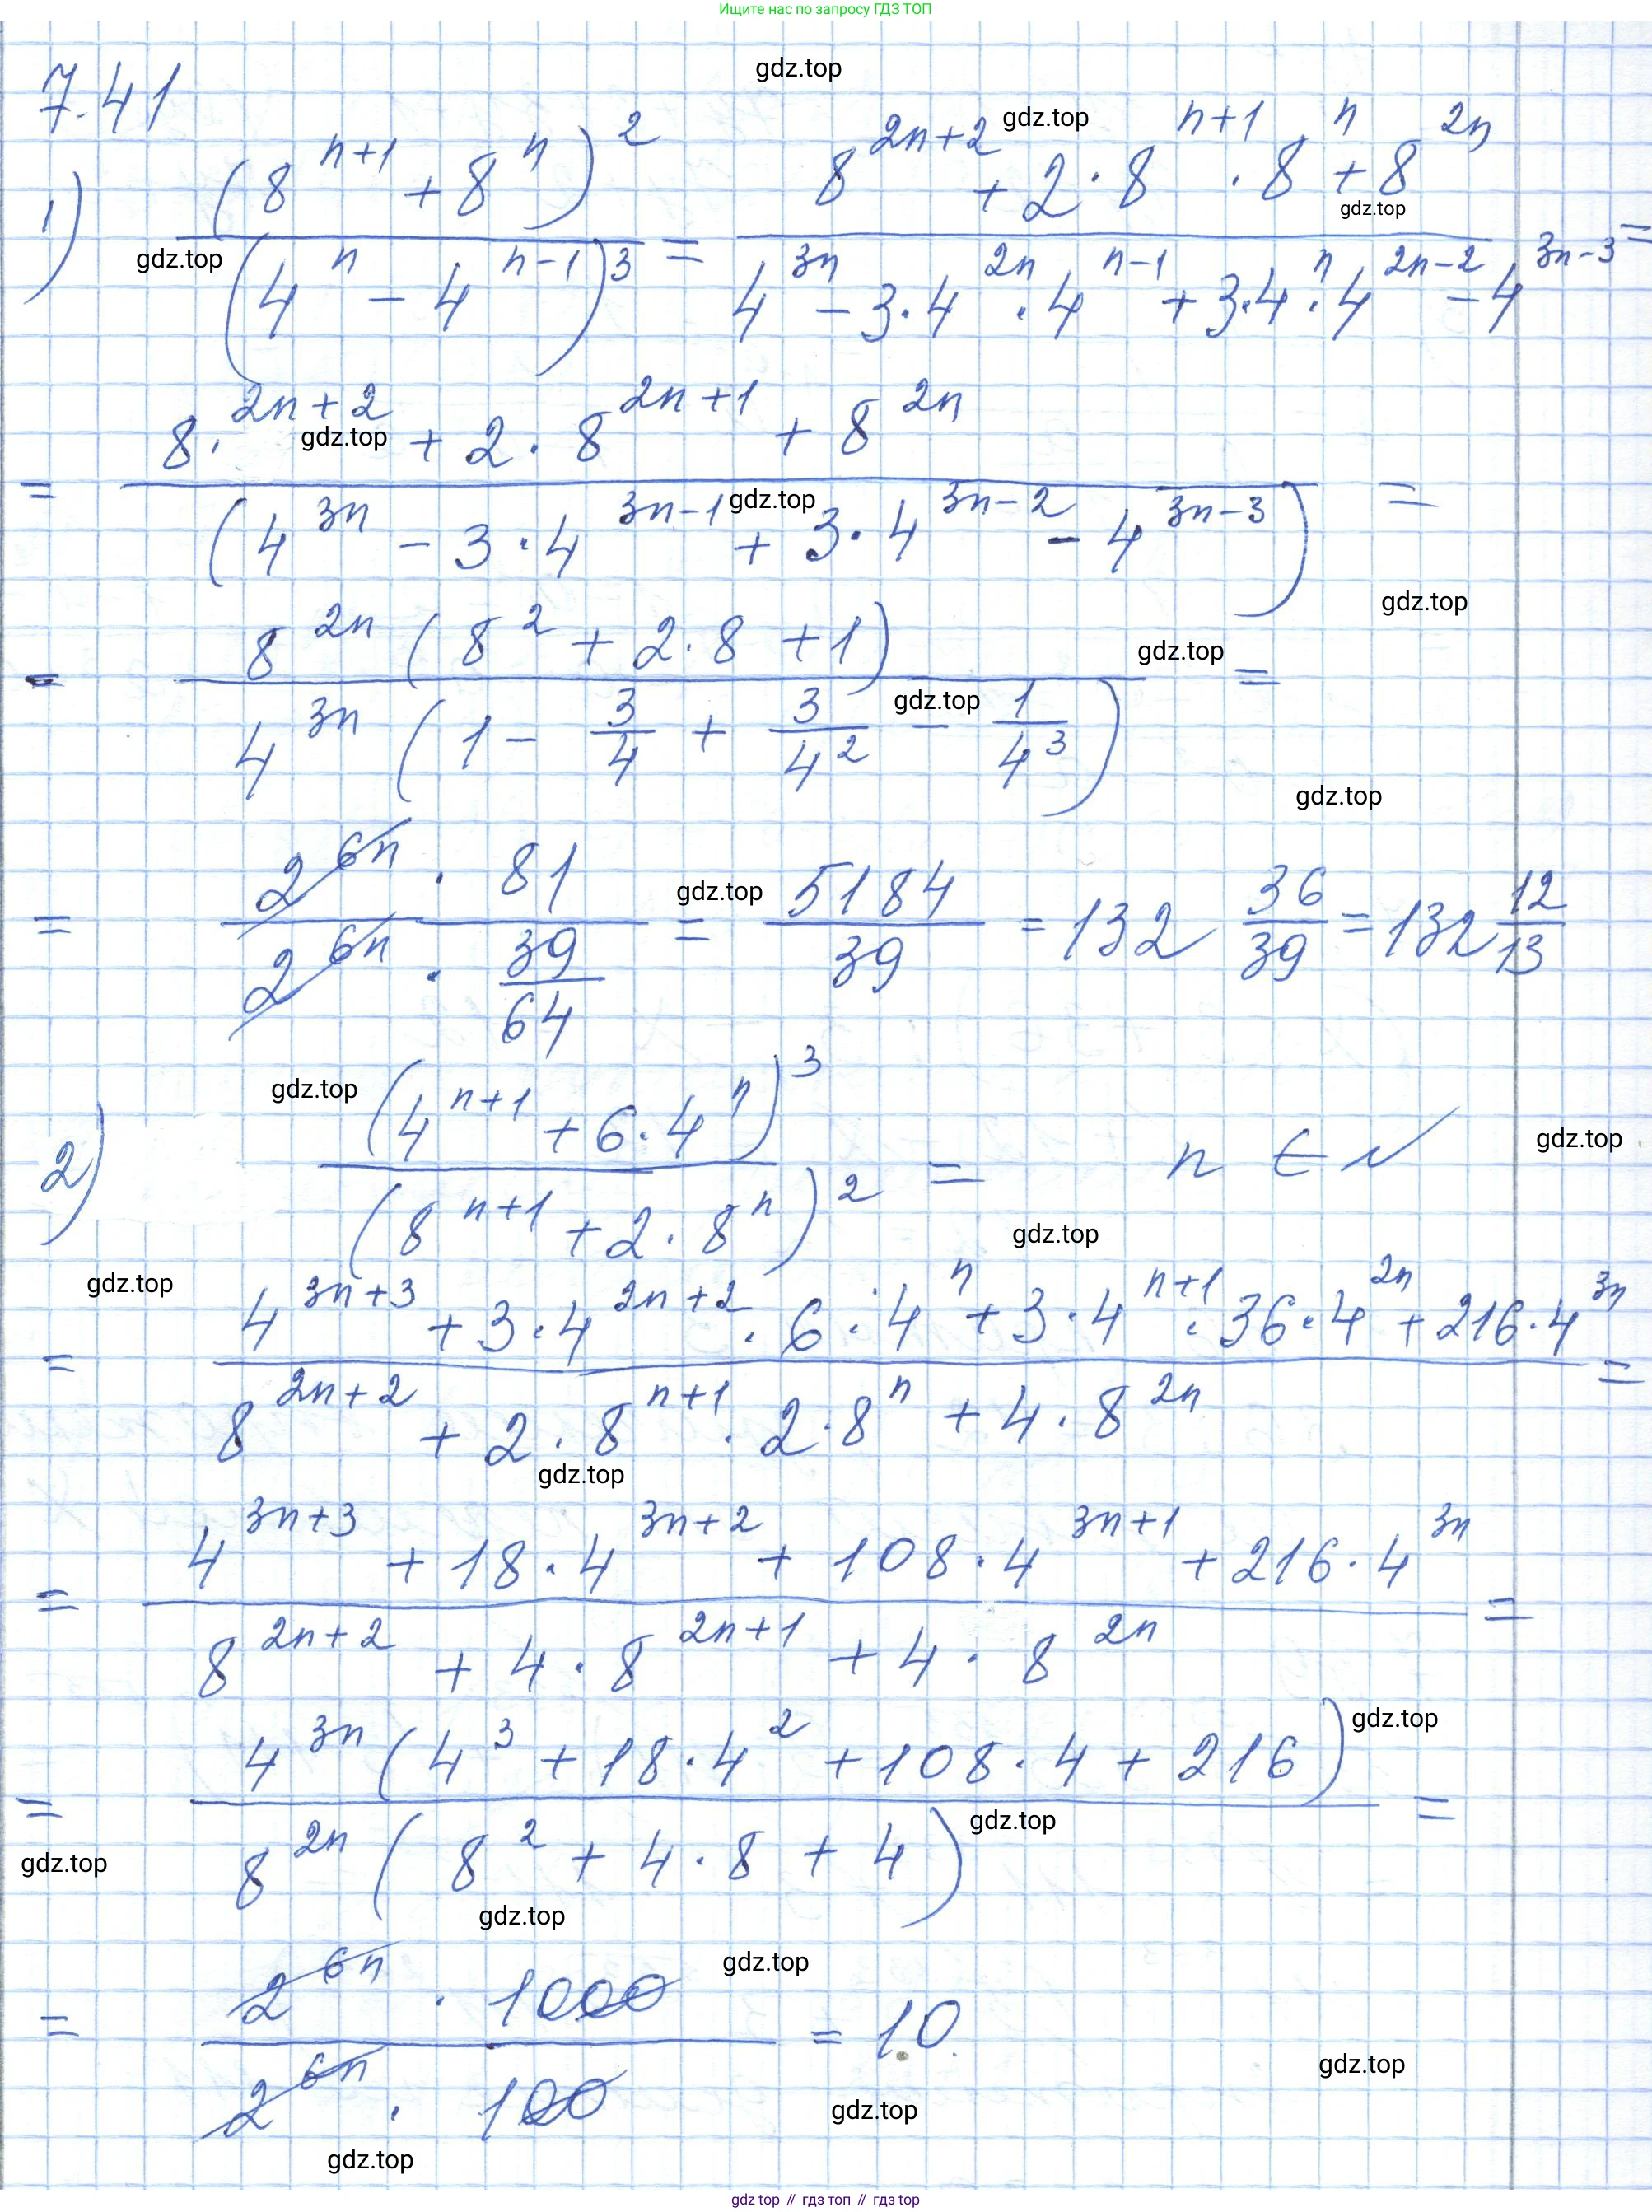 Ищите нас по запросу ГДЗ ТОП
gdz.top
7.41
1) (8^{n+1} + 8^n)^2 / (4^n - 4^{n-1})^3 = (8^{2n+2} + 2 · 8^{n+1} · 8^n + 8^{2n}) / (4^{3n} - 3 · 4^{2n} · 4^{n-1} + 3 · 4^n · 4^{2n-2} - 4^{3n-3}) =
gdz.top
gdz.top
gdz.top
= (8 · ^{2n+2} + 2 · 8^{2n+1} + 8^{2n}) / (4^{3n} - 3 · 4^{3n-1} + 3 · 4^{3n-2} - 4^{3n-3}) =
gdz.top
gdz.top
gdz.top
= 8^{2n} (8^2 + 2 · 8 + 1) / 4^{3n} (1 - 3/4 + 3/4^2 - 1/4^3) =
gdz.top
gdz.top
gdz.top
= 2^{6n} · 81 / 2^{6n} · 39/64 = 5184/39 = 132 36/39 = 132 12/13
gdz.top
2) (4^{n+1} + 6 · 4^n)^3 / (8^{n+1} + 2 · 8^n)^2 = n ∈ N
gdz.top
gdz.top
gdz.top
gdz.top
= (4^{3n+3} + 3 · 4^{2n+2} · 6 · 4^n + 3 · 4^{n+1} · 36 · 4^{2n} + 216 · 4^{3n}) / (8^{2n+2} + 2 · 8^{n+1} · 2 · 8^n + 4 · 8^{2n}) =
gdz.top
= (4^{3n+3} + 18 · 4^{3n+2} + 108 · 4^{3n+1} + 216 · 4^{3n}) / (8^{2n+2} + 4 · 8^{2n+1} + 4 · 8^{2n}) =
gdz.top
= 4^{3n} (4^3 + 18 · 4^2 + 108 · 4 + 216) / 8^{2n} (8^2 + 4 · 8 + 4) =
gdz.top
gdz.top
gdz.top
gdz.top
= 2^{6n} · 1000 / 2^{6n} · 100 = 10.
gdz.top
gdz.top
gdz.top
gdz top // гдз топ // гдз top